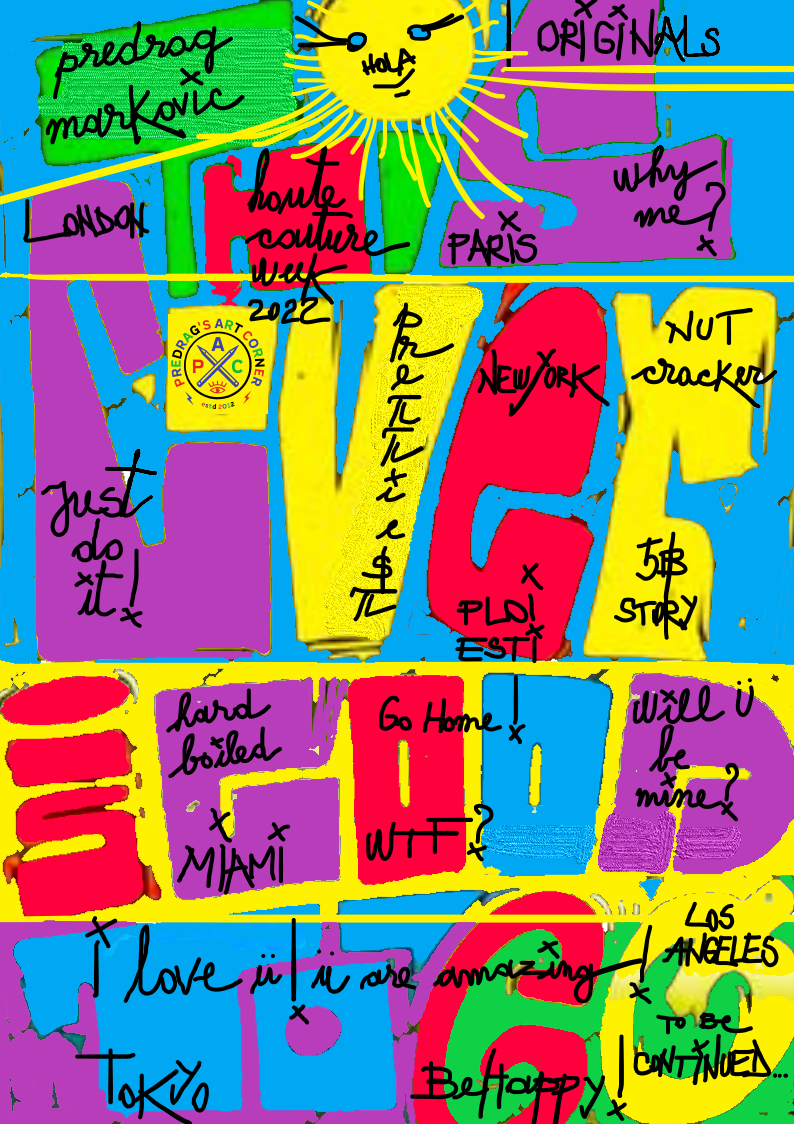 predrag
markovic
HOLA
ORIGINALS
LONDON
haute
couture
week
2022
why
me?
PARIS
PREDRAG'S ART CORNER
P A C
estd 2012
NEW YORK
NUT
cracker
Just
do
it!
PLOI
ESTI
STORY
hard
boiled
MIAMI
Go Home!
WTF?
will ü
be
mine?
i love ü! ü are amazing!
LOS
ANGELES
TO BE
CONTINUED...
TOKYO
Be Happy!
THIS
EVER
is GOOD
TO GO